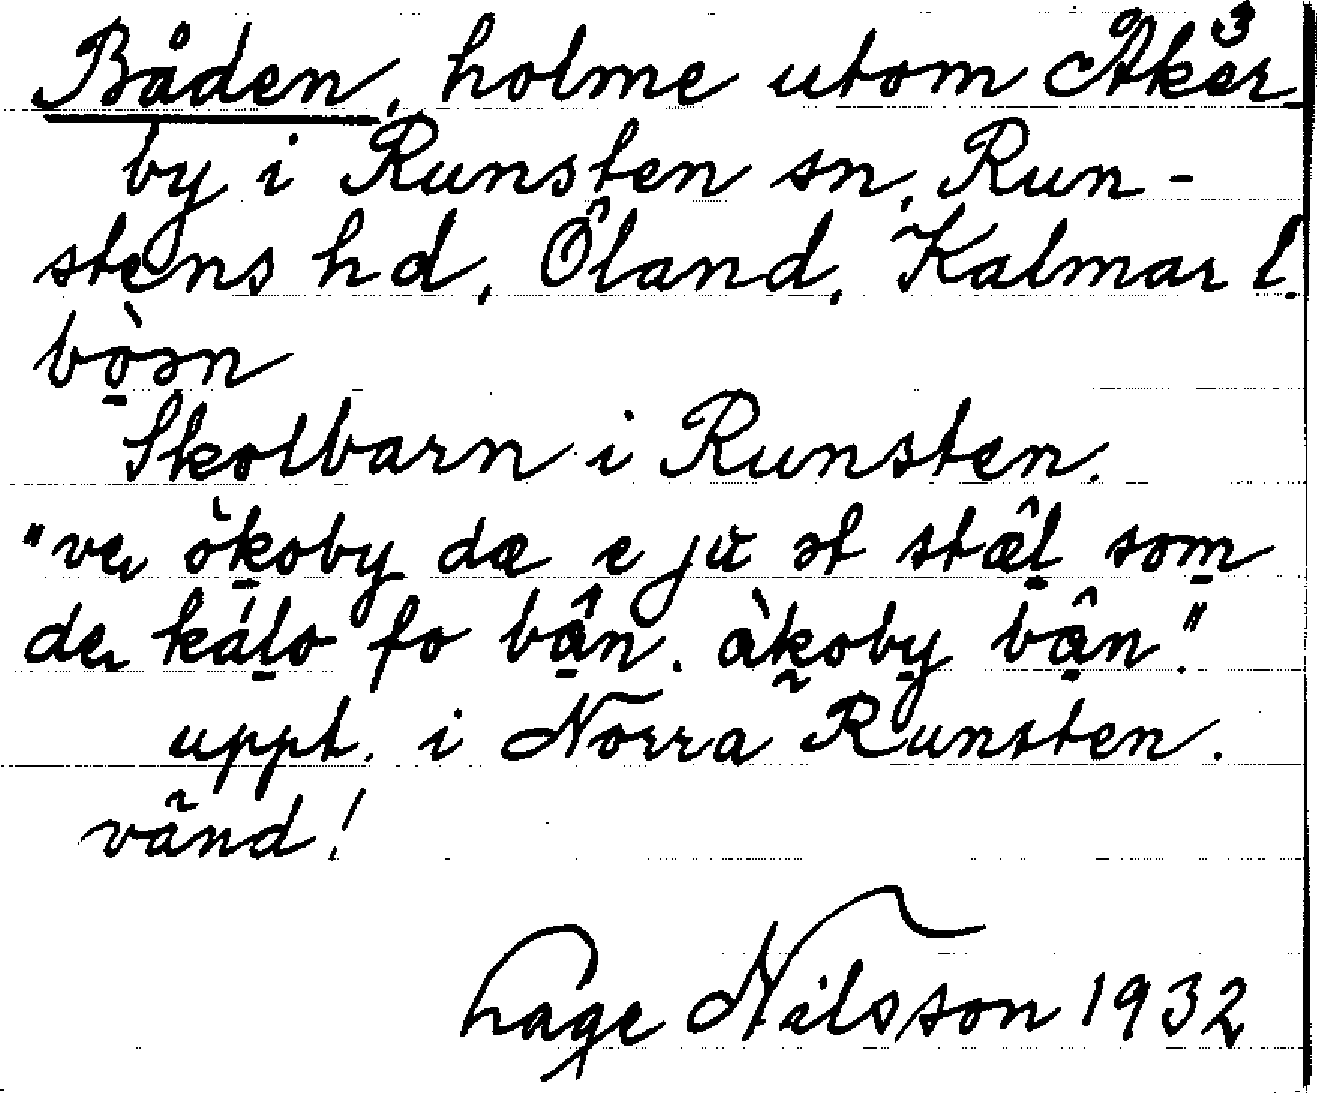 Båden, holme utom Åker-
by i Runsten sn, Run-
stens hd, Öland, Kalmar l.
bò̱ən
Skolbarn i Runsten.
"ve, òḵoby dæ e ju ət stæ̂ḻ som̱
de, káḻo fo bâ̱n. àḵoby̱ bâ̱n."
uppt. i Norra Runsten.
vänd!
Hage Nilsson 1932